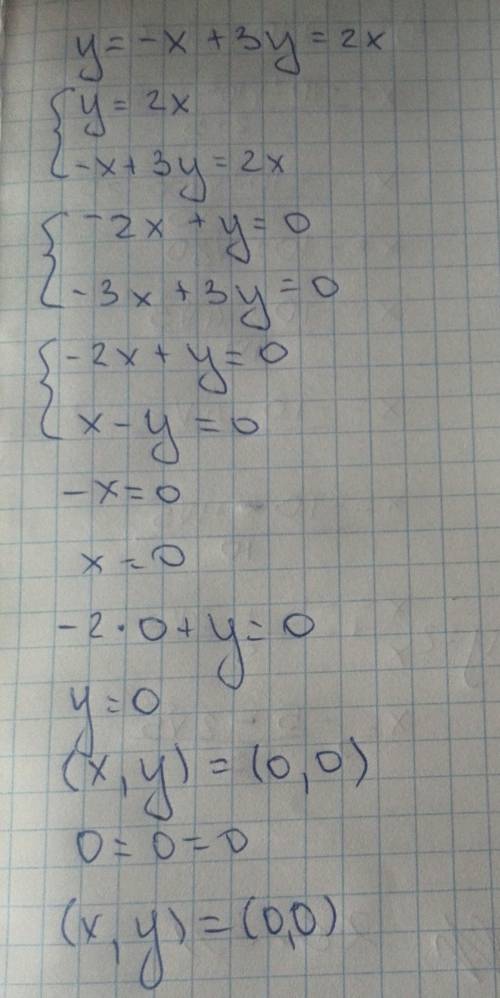 y = -x + 3y = 2x
{ y = 2x
-x + 3y = 2x
{ -2x + y = 0
-3x + 3y = 0
{ -2x + y = 0
x - y = 0
-x = 0
x = 0
-2 · 0 + y = 0
y = 0
(x, y) = (0, 0)
0 = 0 = 0
(x, y) = (0,0)